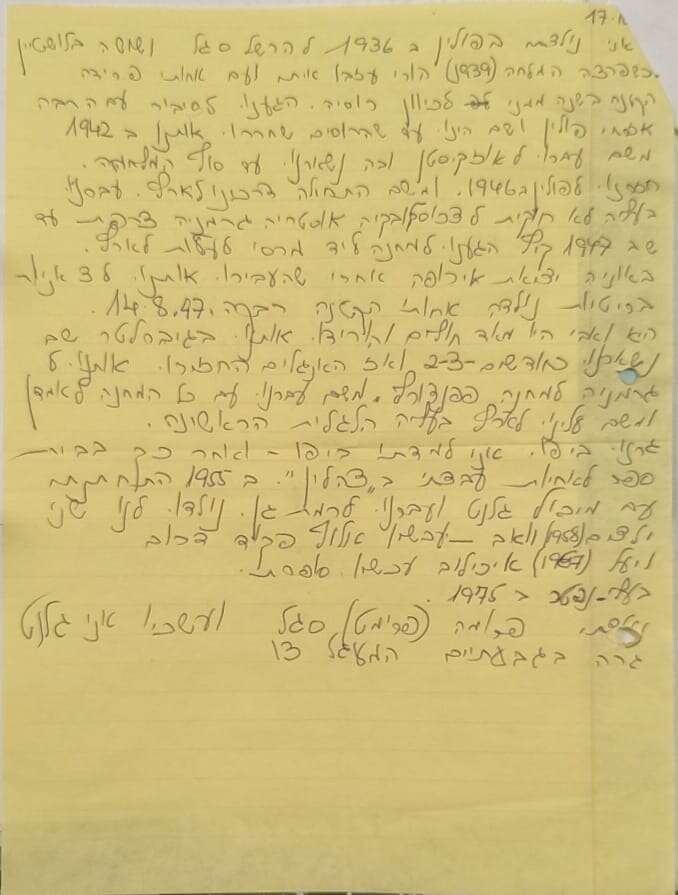 17.א
אני נולדתי בפולין ב 1936 להרשל סגל ושושה בלושטיין
כשפרצה המלחה (1939) הורי עזבו איתי ועם אחותי פרידה
הקטנה בשנה ממני לכיוון רוסיה. הגענו לסיביר עם הרבה
אזרחי פולין ושם היינו עד שהרוסים שחררו אותנו ב 1942
משם עברנו לאוזבקיסטן ובה נשארנו עד סוף המלחמה.
חזרנו לפולין ב 1946. ומשם התחילה דרכנו לארץ. עבסנו
בעליה לא חוקית לצכוסלובקיה אוסטריה גרמניה צרפת עד
שב 1947 קיץ הגענו למחנה ליד מרסי לעלות לארץ.
באוניה יציאת אירופה אחרי שהעבירו אותנו ל 3 אניות
בריטיות נולדה אחותי הקטנה רבקה. 14.8.47.
היא ואבי היו מאד חולים והורידו אותנו בגיברלטר שב
נשארנו כחודשים 2-3 ואז האנגלים החזירו אותנו ל
גרמניה למחנה פפנדורף. משם עברנו עם כל המחנה לאמדן
ומשם עלינו לארץ בעליה הלגלית הראשונה.
גרנו ביפו. אני למדתי ביפו - ואחר כך בבית
ספר לאחיות עבדתי ב"צהלון". ב 1955 התחתנתי
עם מיכאל גלנט ועברנו לרמת גן. נולדו לנו שני
ילדים (1958) יואב - עכשיו אלוף פקוד דרום
ויעל (1967) איכילוב עכשיו סופרת.
בעלי נפטר ב 1975.
נולדתי פרומה (פרימט) סגל ועשכיו אני גלנט
גרה בגבעתיים המעגל 13